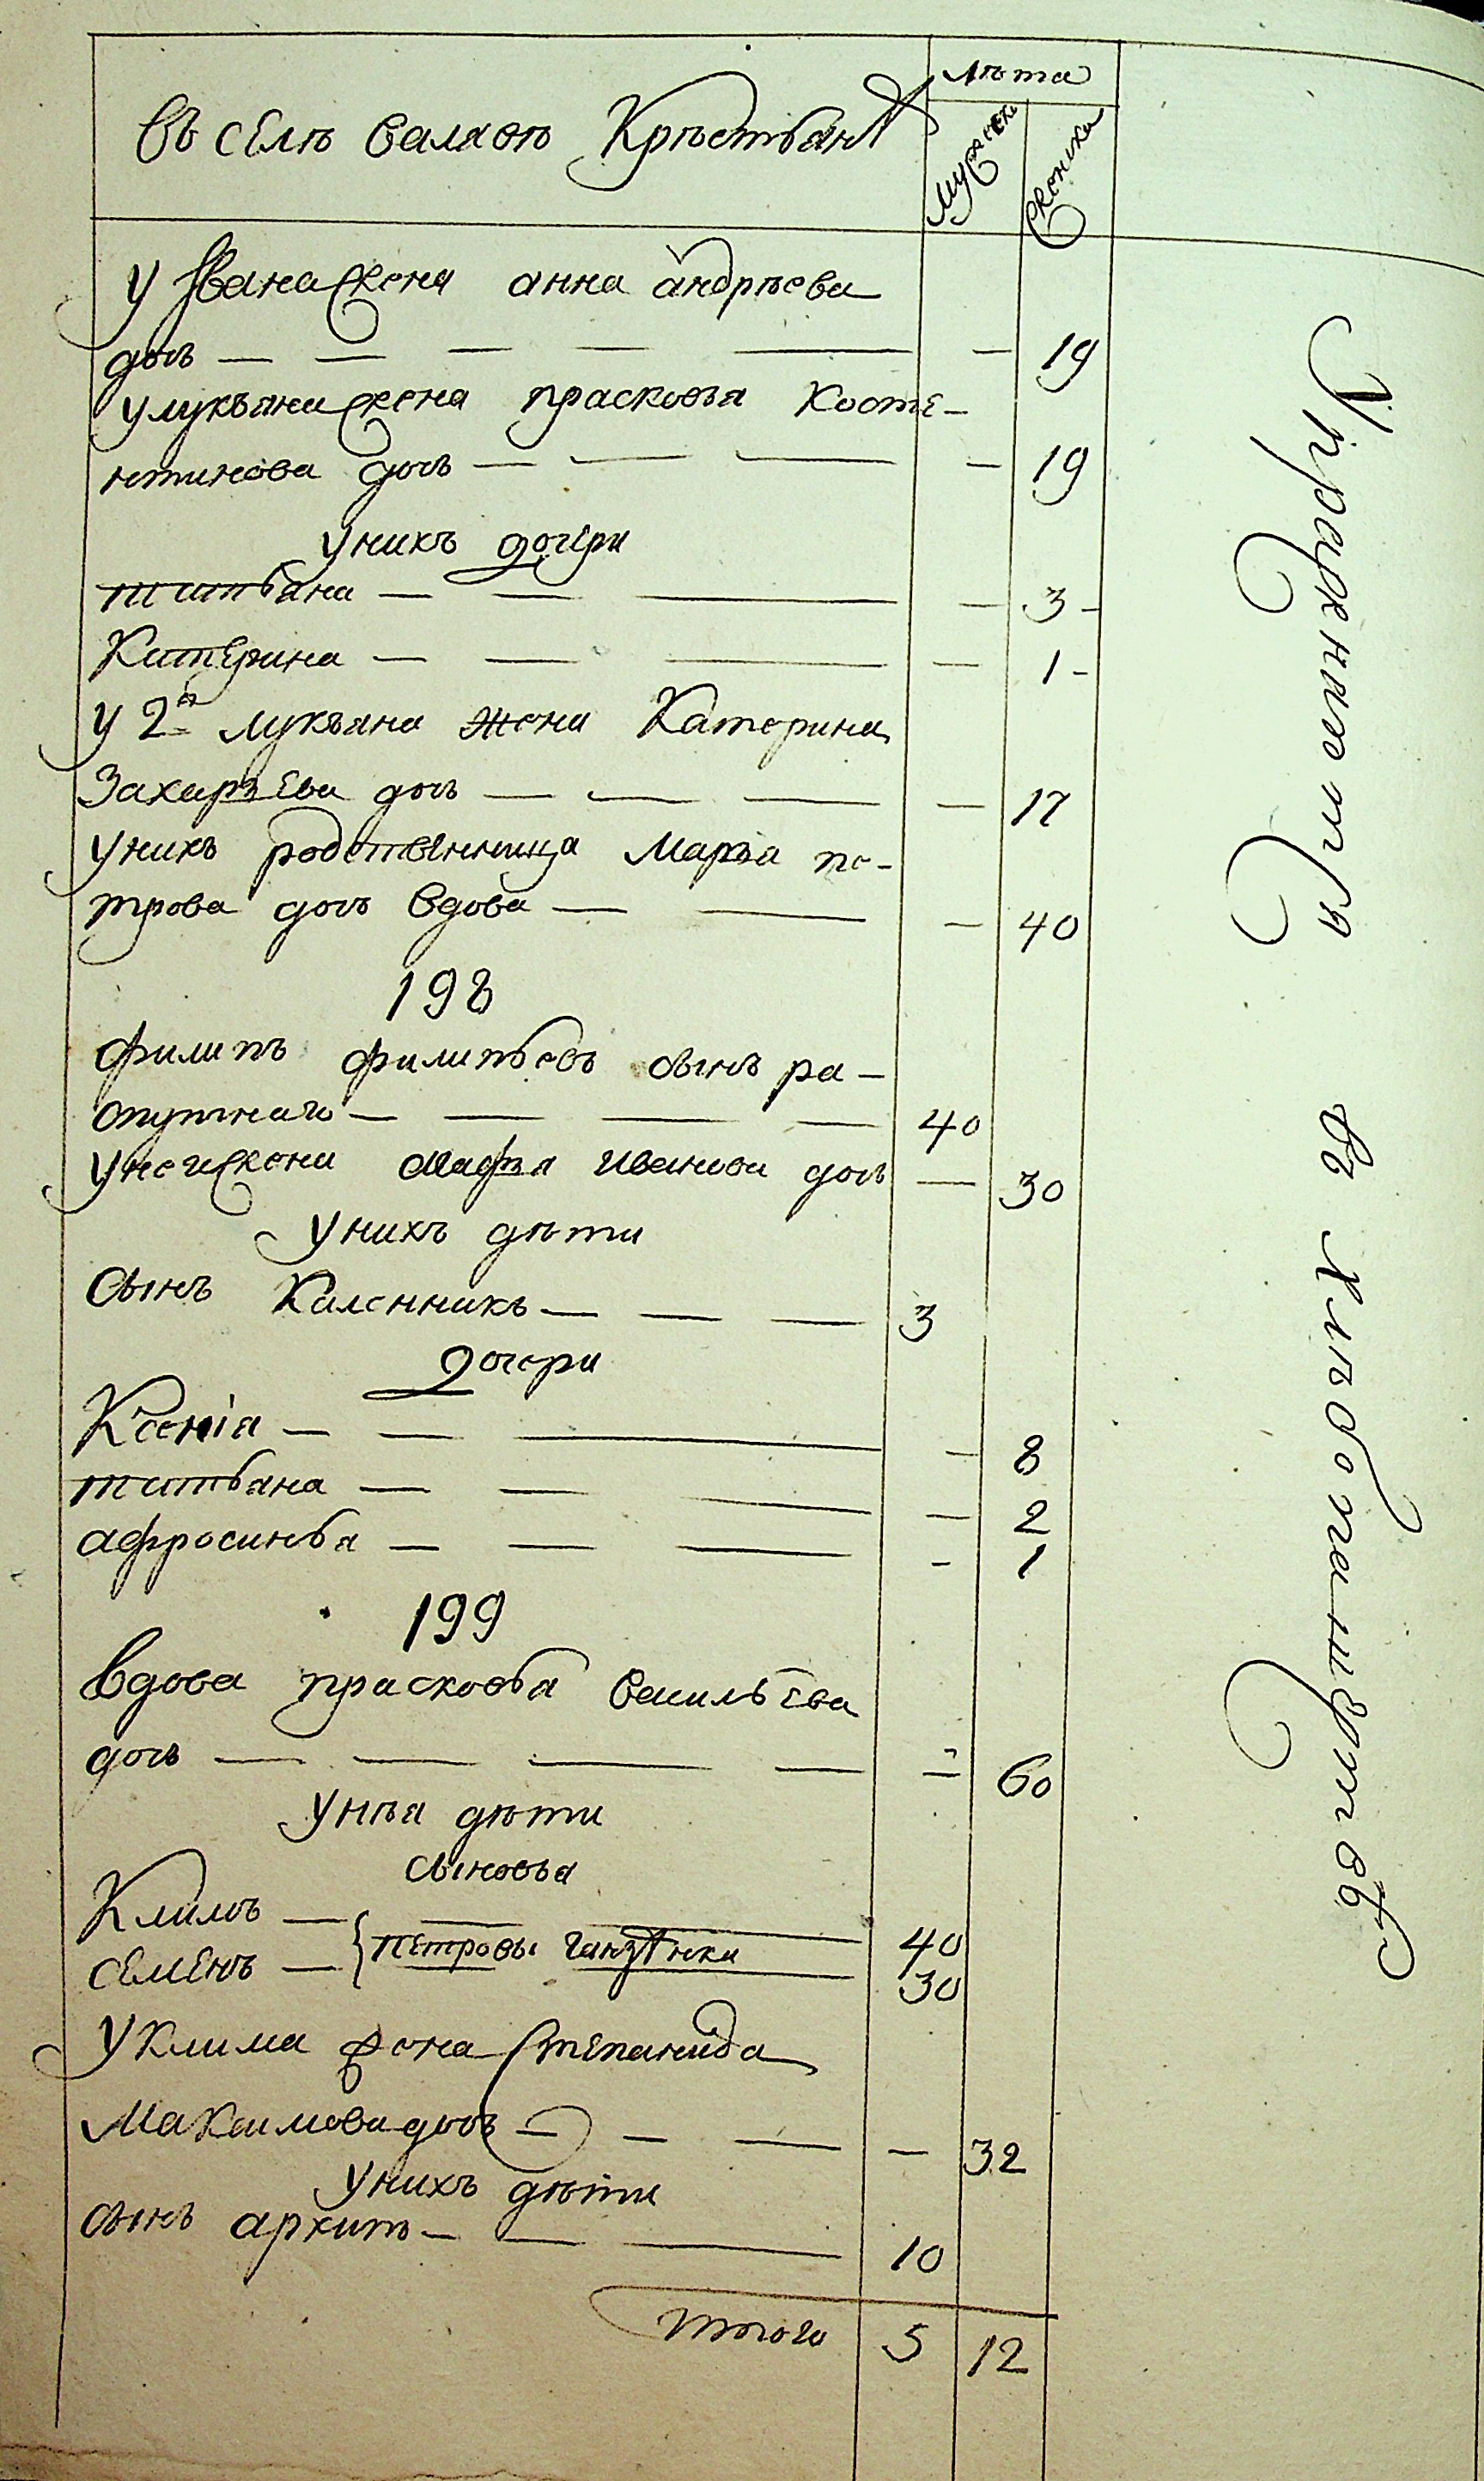 въ селѣ Крѣстьян
лѣта
мужеска
женска
У Ивана жена анна андрѣева
дочь — — — — — — 19
у лукъяна жена прасковья Косте-
нтинова дочь — — — — 19
у нихъ дочери
татьяна — — — — 3 -
Катерина — — — — 1 -
у 2го лукъяна жена Катерина
Захарьева дочь — — — — 17
у нихъ родственница Марья пе-
трова дочь вдова — — — 40
198
филипъ филипьевъ сынъ ра-
спутнаго — — — — 40
у него жена Марфа Иванова дочь — 30
у нихъ дѣти
сынъ Каленникъ — — — 3
дочери
Ксенія — — — — 8
татьяна — — — — 2
афросинья — — — - 1
199
вдова прасковья васильева
дочь — — — — — 60
у нѣя дѣти
сыновья
Климъ — — — 40
семенъ — { петровы — 30
у Клима жена степанида
Максимова дочь — — — — 32
у нихъ дѣти
сынъ архипъ — — — 10
итого 5 12
Упражняются въ Хлѣбопашествѣ